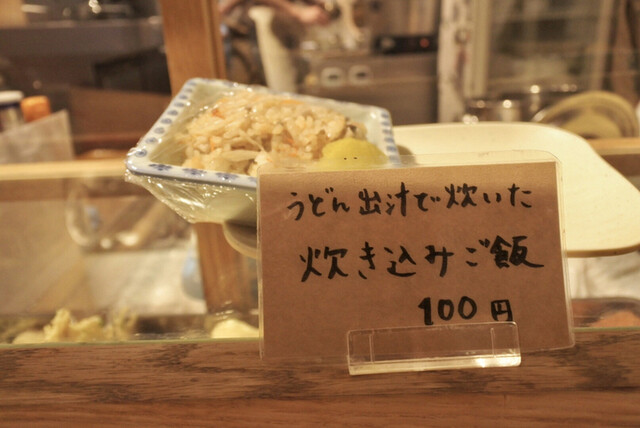 うどん出汁で炊いた
炊き込みご飯
100円